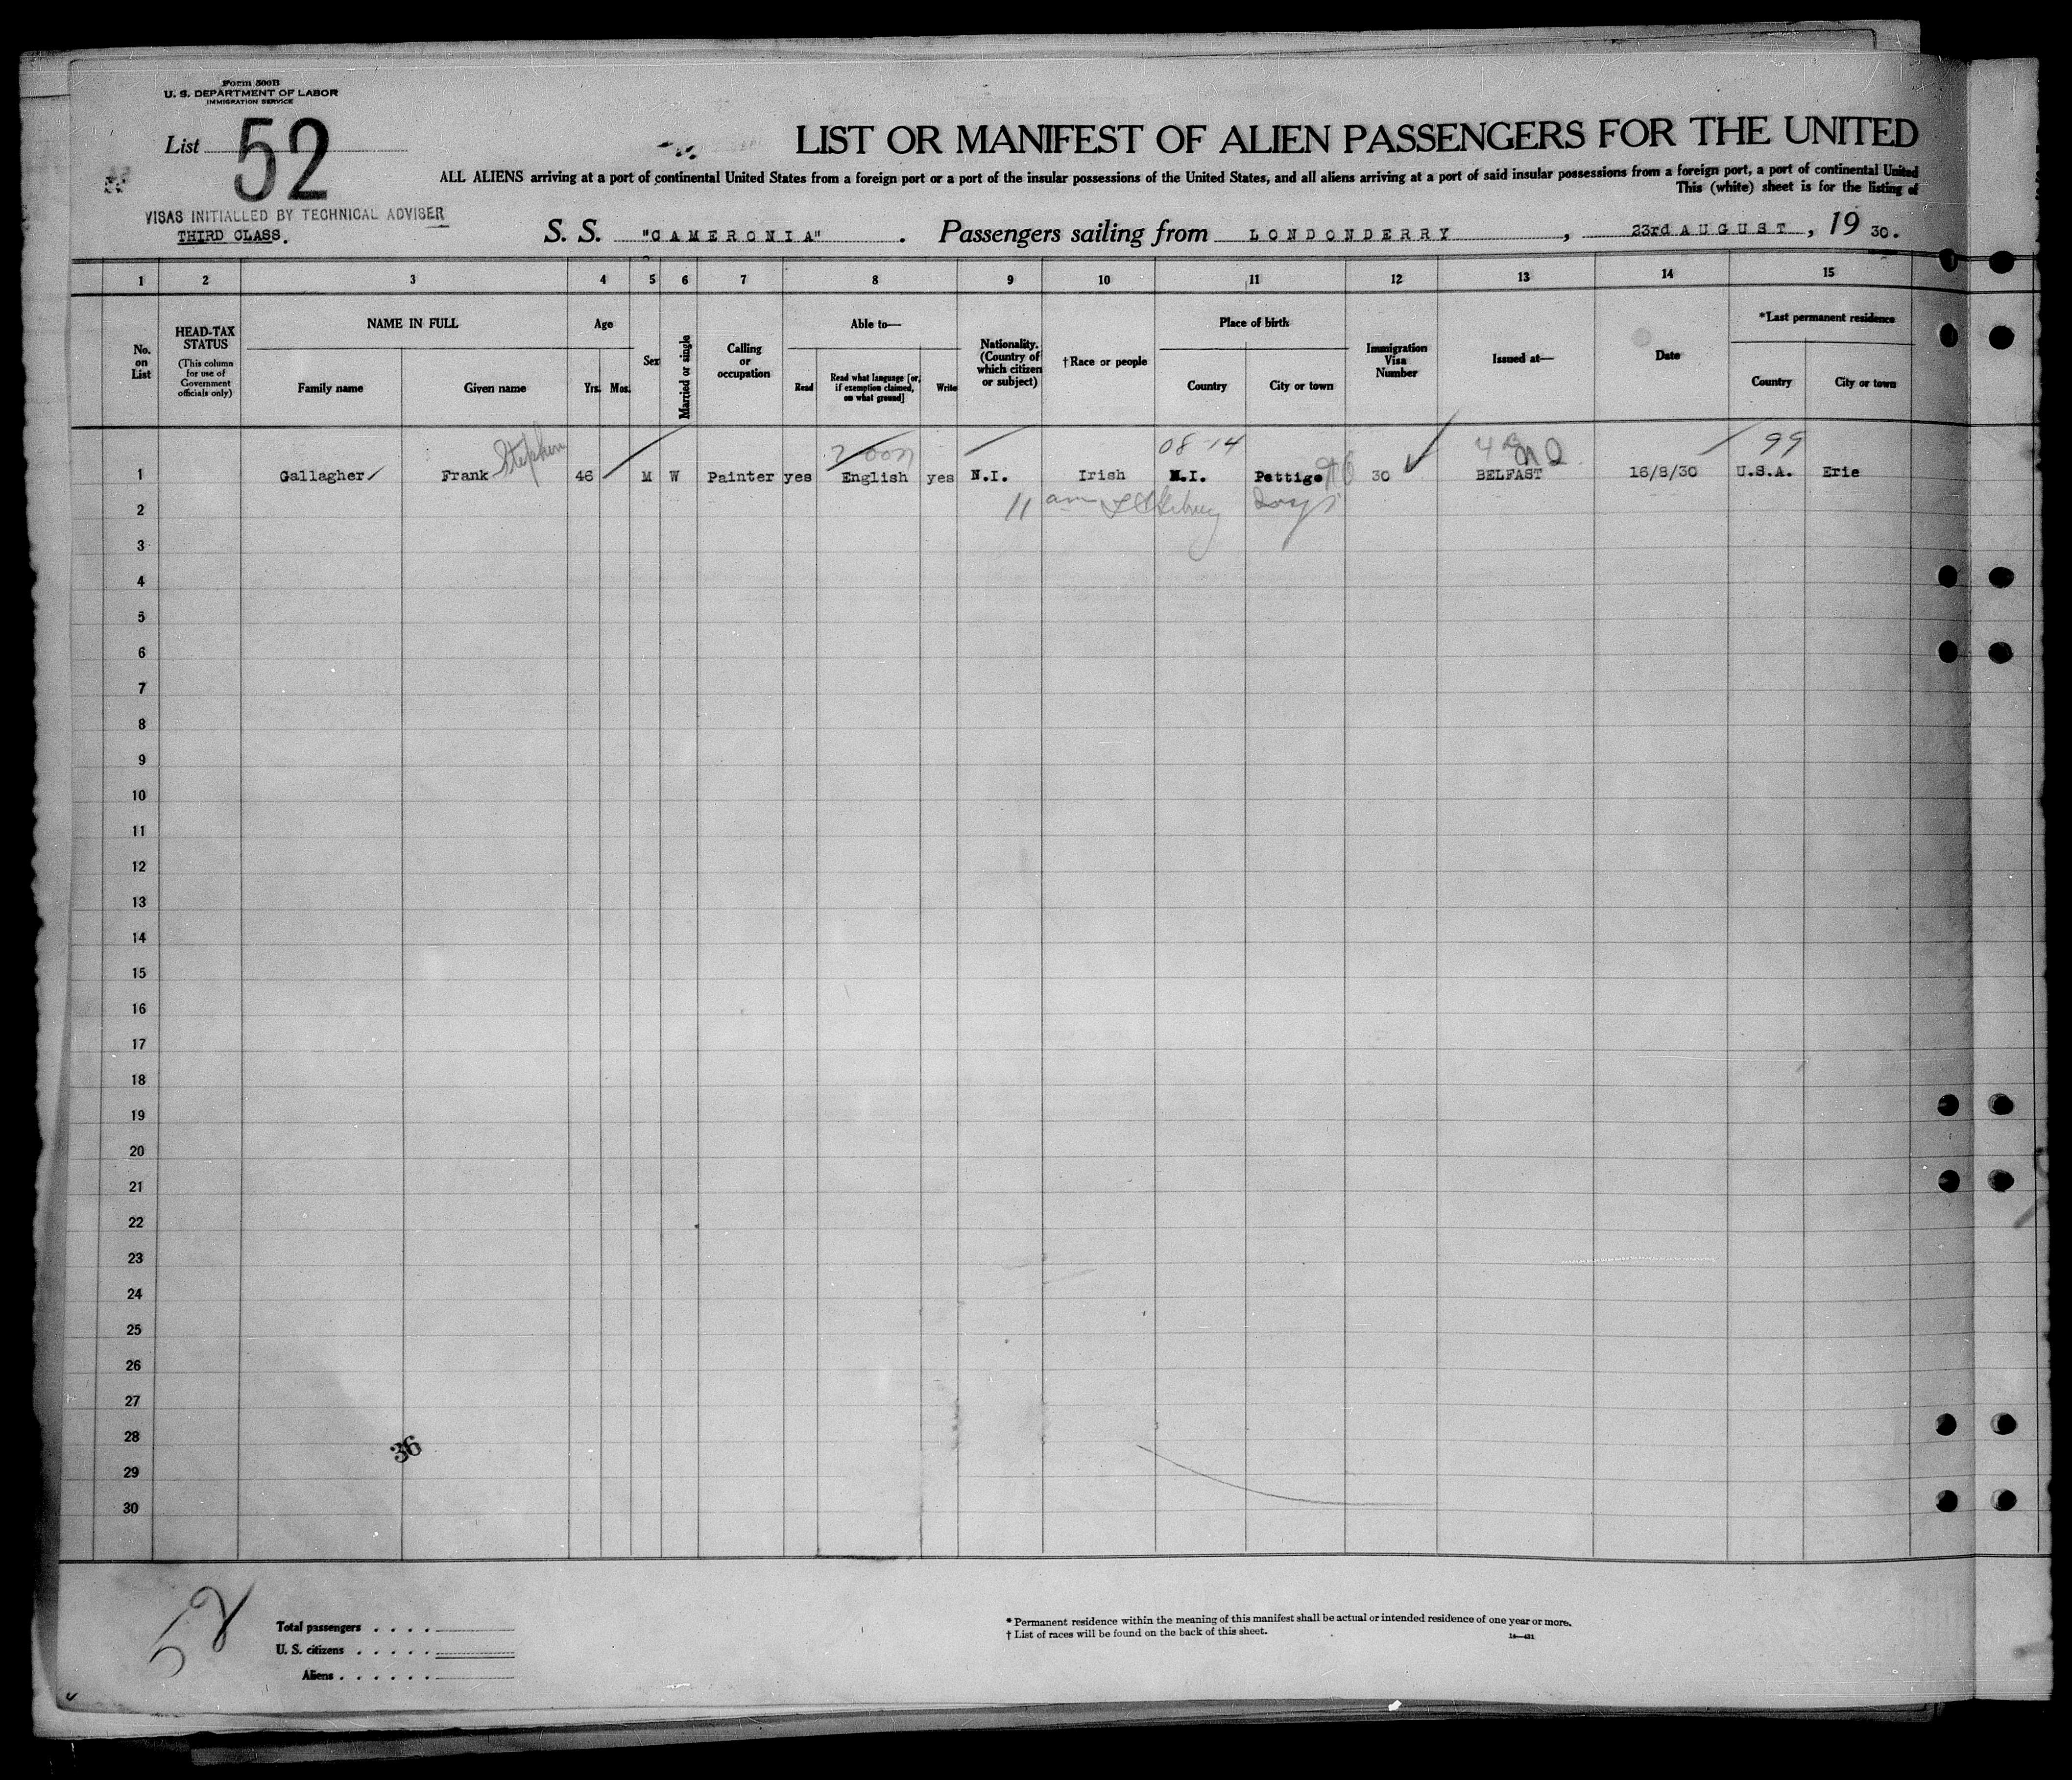 Form 500B
U. S. DEPARTMENT OF LABOR
IMMIGRATION SERVICE
List 52
LIST OR MANIFEST OF ALIEN PASSENGERS FOR THE UNITED
ALL ALIENS arriving at a port of continental United States from a foreign port or a port of the insular possessions of the United States, and all aliens arriving at a port of said insular possessions from a foreign port, a port of continental United
This (white) sheet is for the listing of
VISAS INITIALLED BY TECHNICAL ADVISER
THIRD CLASS.
S. S. "CAMERONIA". Passengers sailing from LONDONDERRY, 23rd AUGUST, 19 30.
1 2 3 4 5 6 7 8 9 10 11 12 13 14 15
No. on List
HEAD-TAX STATUS
(This column for use of Government officials only)
NAME IN FULL
Family name
Given name
Age
Yrs. Mos.
Sex
Married or single
Calling or occupation
Able to—
Read
Read what language [or, if exemption claimed, on what ground]
Write
Nationality. (Country of which citizen or subject)
†Race or people
Place of birth
Country
City or town
Immigration Visa Number
Issued at—
Date
*Last permanent residence
Country
City or town
Stephen
08-14
99
1 Gallagher Frank 46 M W Painter yes English yes N.I. Irish N.I. Pettigo 30 BELFAST 16/8/30 U.S.A. Erie
2 11 am
3
4
5
6
7
8
9
10
11
12
13
14
15
16
17
18
19
20
21
22
23
24
25
26
27
28
36
29
30
52
Total passengers
U. S. citizens
Aliens
* Permanent residence within the meaning of this manifest shall be actual or intended residence of one year or more.
† List of races will be found on the back of this sheet.